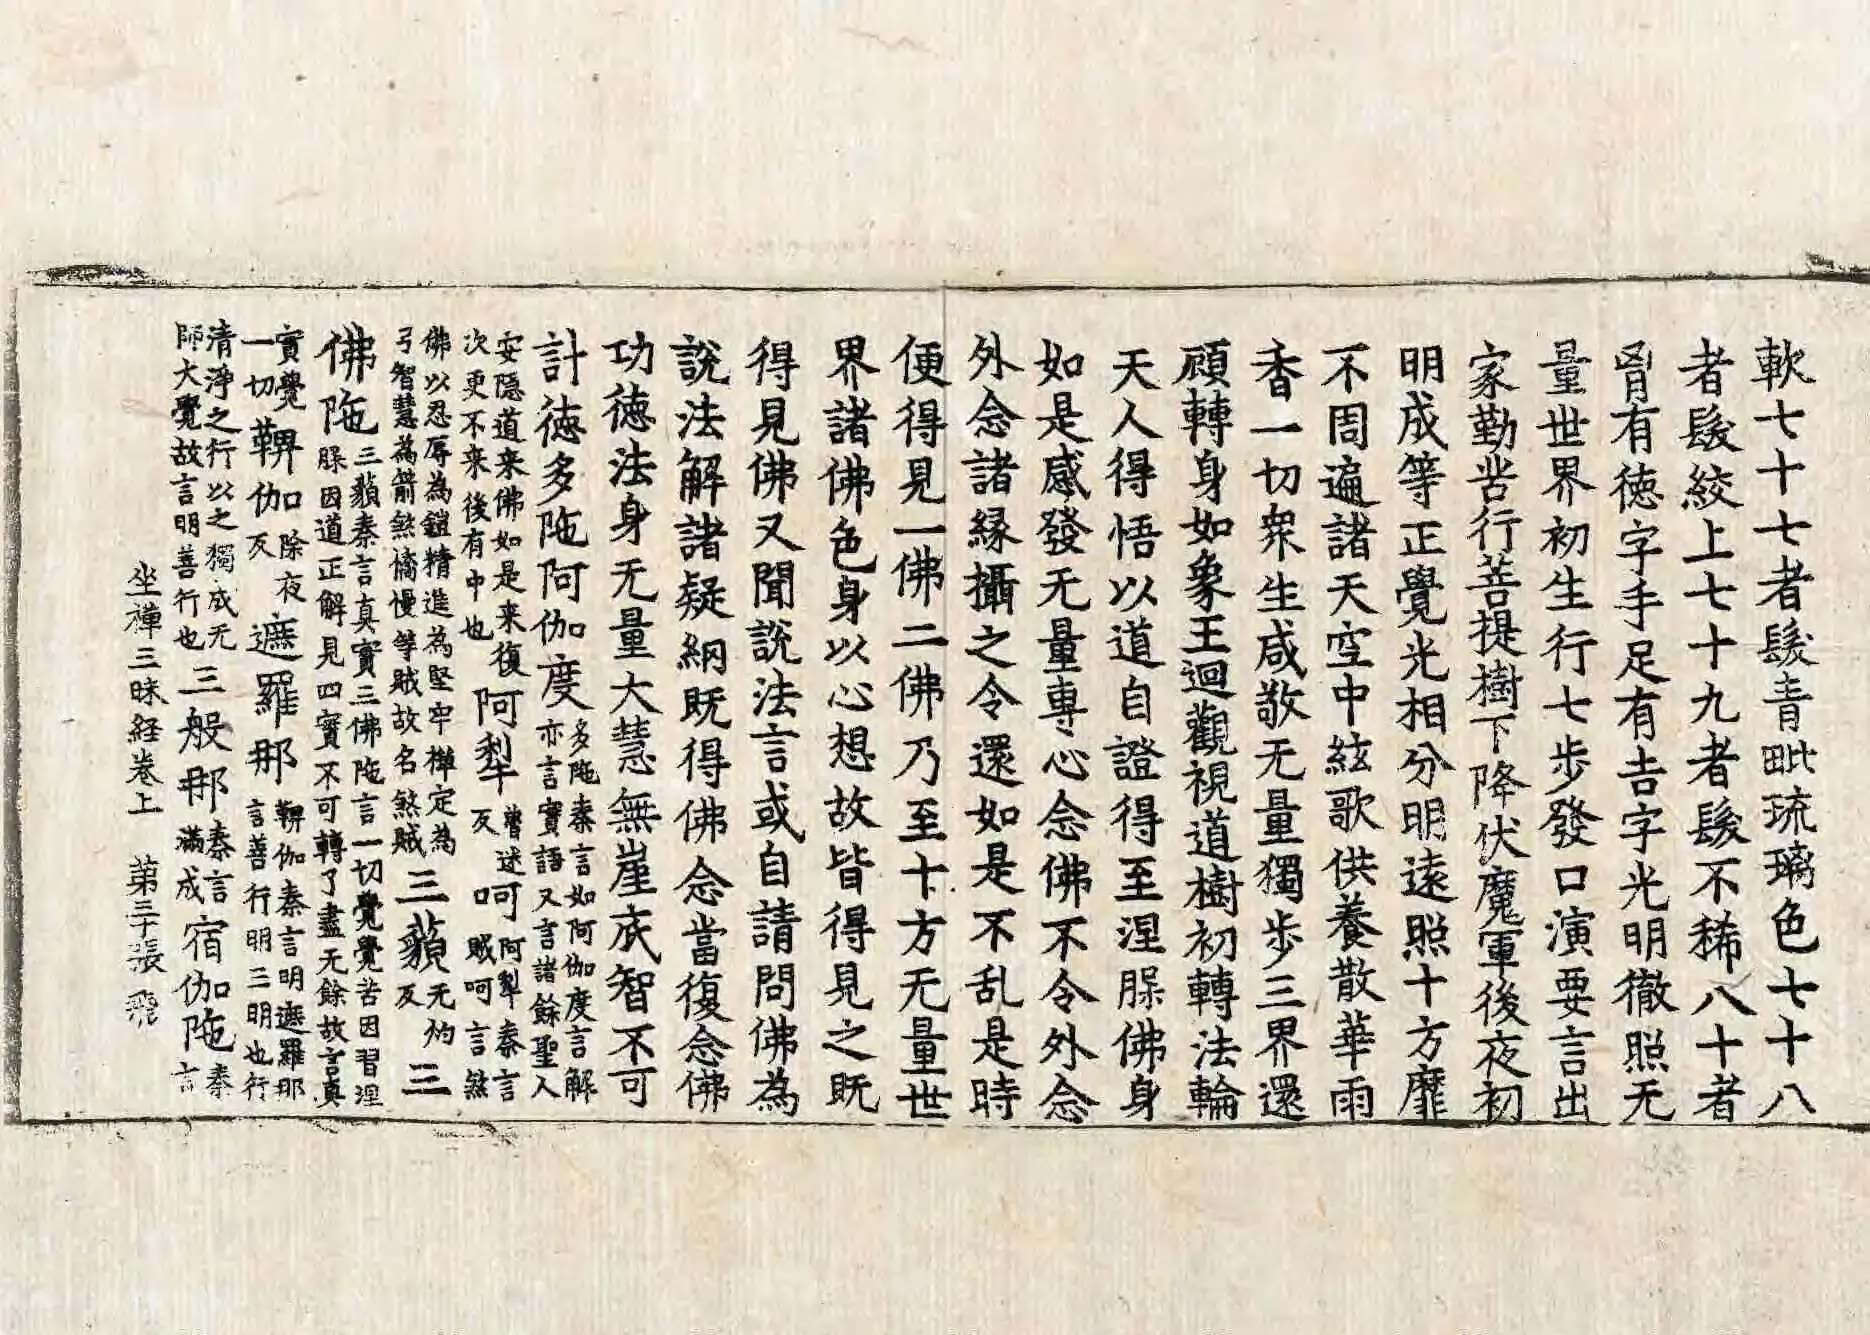 軟七十七者髮青毗琉璃色七十八
者髮絞上七十九者髮不稀八十者
胷有德字手足有吉字光明徹照无
量世界初生行七步發口演要言出
家勤苦行菩提樹下降伏魔軍後夜初
明成等正覺光相分明遠照十方靡
不周遍諸天空中絃歌供養散華雨
香一切衆生咸敬无量獨步三界還
顧轉身如象王迴觀視道樹初轉法輪
天人得悟以道自證得至涅槃佛身
如是感發无量專心念佛不令外念
外念諸緣攝之令還如是不乱是時
便得見一佛二佛乃至十方无量世
界諸佛色身以心想故皆得見之既
得見佛又聞說法言或自請問佛為
說法解諸疑網既得佛念當復念佛
功德法身无量大慧無崖底智不可
計德多陁阿伽度多陁秦言如阿伽度言解
亦言實語又言諸餘聖人
安隱道来佛如是来復
次更不来後有中也阿犁
反阿犁秦言
賊呵言煞
佛以忍辱為鎧精進為堅牢禪定為
弓智慧為箭煞憍慢等賊故名煞賊三藐无灼
反三
佛陁三藐秦言真實三佛陁言一切覺覺苦因習涅
槃因道正解見四實不可轉了盡无餘故言真
實覺鞞加除夜
一切鞞伽反遮羅那鞞伽秦言明遮羅那
言善行明三明也行
清淨之行以之獨成无
師大覺故言明善行也三般那秦言
滿成宿伽陁秦
言
坐禪三昧経卷上　第三十張　飛